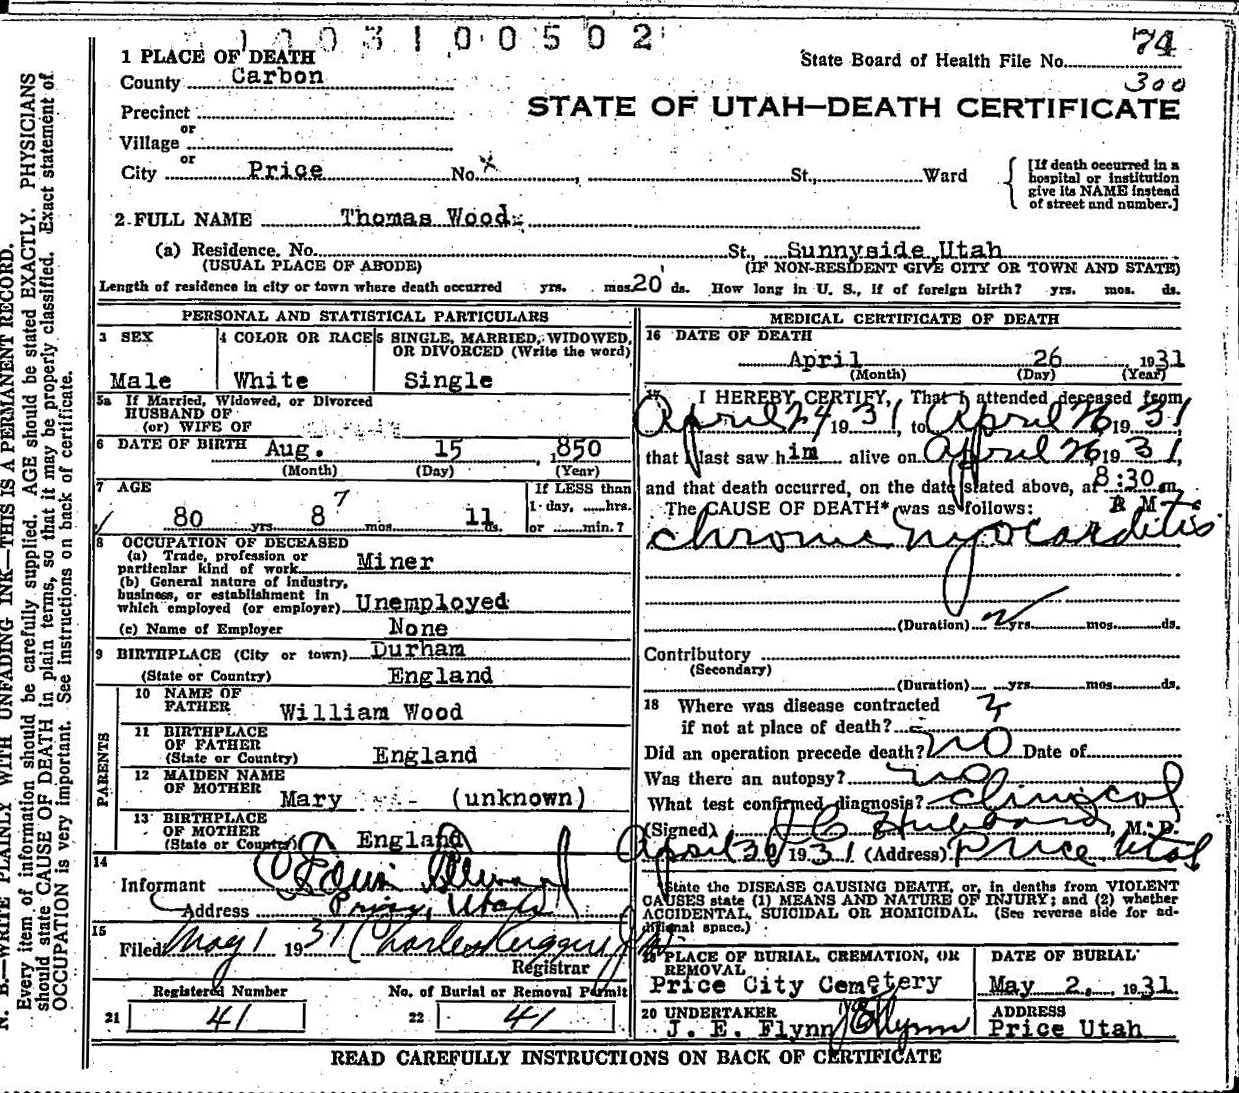 1 1 0 3 1 0 0 5 0 2
1 PLACE OF DEATH
State Board of Health File No. 74
County Carbon
300
STATE OF UTAH—DEATH CERTIFICATE
Precinct
or
Village
or
City Price No. x , St., Ward
[If death occurred in a
hospital or institution
give its NAME instead
of street and number.]
2 FULL NAME Thomas Wood
(a) Residence. No. St., Sunnyside, Utah
(USUAL PLACE OF ABODE) (IF NON-RESIDENT GIVE CITY OR TOWN AND STATE)
Length of residence in city or town where death occurred yrs. mos. 20 ds. How long in U. S., if of foreign birth? yrs. mos. ds.
PERSONAL AND STATISTICAL PARTICULARS
3 SEX
Male
4 COLOR OR RACE
White
5 SINGLE, MARRIED, WIDOWED,
OR DIVORCED (Write the word)
Single
5a If Married, Widowed, or Divorced
HUSBAND OF
(or) WIFE OF
6 DATE OF BIRTH Aug. 15 , 1850
(Month) (Day) (Year)
7 AGE
If LESS than
1 day, ......hrs.
or ......min.?
7
80 yrs 8 mos 11 ds.
8 OCCUPATION OF DECEASED
(a) Trade, profession or
particular kind of work Miner
(b) General nature of industry,
business, or establishment in
which employed (or employer) Unemployed
(c) Name of Employer None
9 BIRTHPLACE (City or town) Durham
(State or Country) England
PARENTS
10 NAME OF
FATHER William Wood
11 BIRTHPLACE
OF FATHER
(State or Country) England
12 MAIDEN NAME
OF MOTHER Mary (unknown)
13 BIRTHPLACE
OF MOTHER
(State or Country) England
14
Informant
Address Price, Utah
15
Filed May 1 1931 Charles Ruggeri
Registrar
Registered Number No. of Burial or Removal Permit
21 41 22 41
MEDICAL CERTIFICATE OF DEATH
16 DATE OF DEATH
April 26 1931
(Month) (Day) (Year)
17 I HEREBY CERTIFY, That I attended deceased from
April 24 1931, to April 26 1931
that I last saw him alive on April 26 1931,
and that death occurred, on the date stated above, at 8:30 m
A M
The CAUSE OF DEATH* was as follows:
chronic myocarditis
(Duration) 2 yrs. mos. ds.
Contributory
(Secondary)
(Duration) yrs. mos. ds.
18 Where was disease contracted
if not at place of death? ?
Did an operation precede death? no Date of
Was there an autopsy? no
What test confirmed diagnosis? clinical
(Signed) J C Hubbard, M. D.
April 30 1931 (Address) Price Utah
*State the DISEASE CAUSING DEATH, or, in deaths from VIOLENT
CAUSES state (1) MEANS AND NATURE OF INJURY; and (2) whether
ACCIDENTAL, SUICIDAL OR HOMICIDAL. (See reverse side for ad-
ditional space.)
19 PLACE OF BURIAL, CREMATION, OR
REMOVAL
Price City Cemetery
DATE OF BURIAL
May 2. 1931.
20 UNDERTAKER
J. E. Flynn J E Flynn
ADDRESS
Price Utah
READ CAREFULLY INSTRUCTIONS ON BACK OF CERTIFICATE
N. B.—WRITE PLAINLY WITH UNFADING INK—THIS IS A PERMANENT RECORD.
Every item of information should be carefully supplied. AGE should be stated EXACTLY. PHYSICIANS
should state CAUSE OF DEATH in plain terms, so that it may be properly classified. Exact statement of
OCCUPATION is very important. See instructions on back of certificate.